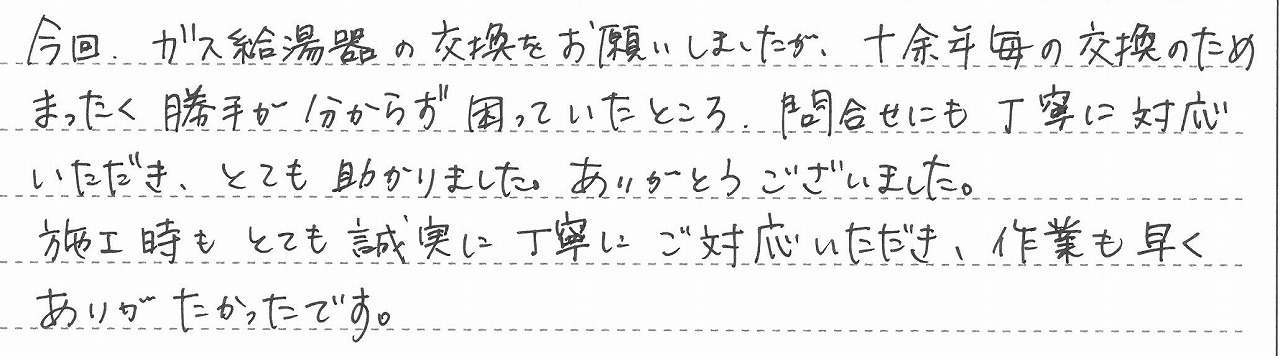 今回、ガス給湯器の交換をお願いしましたが、十余年毎の交換のため
まったく勝手が分からず困っていたところ、問合せにも丁寧に対応
いただき、とても助かりました。ありがとうございました。
施工時もとても誠実に丁寧にご対応いただき、作業も早く
ありがたかったです。